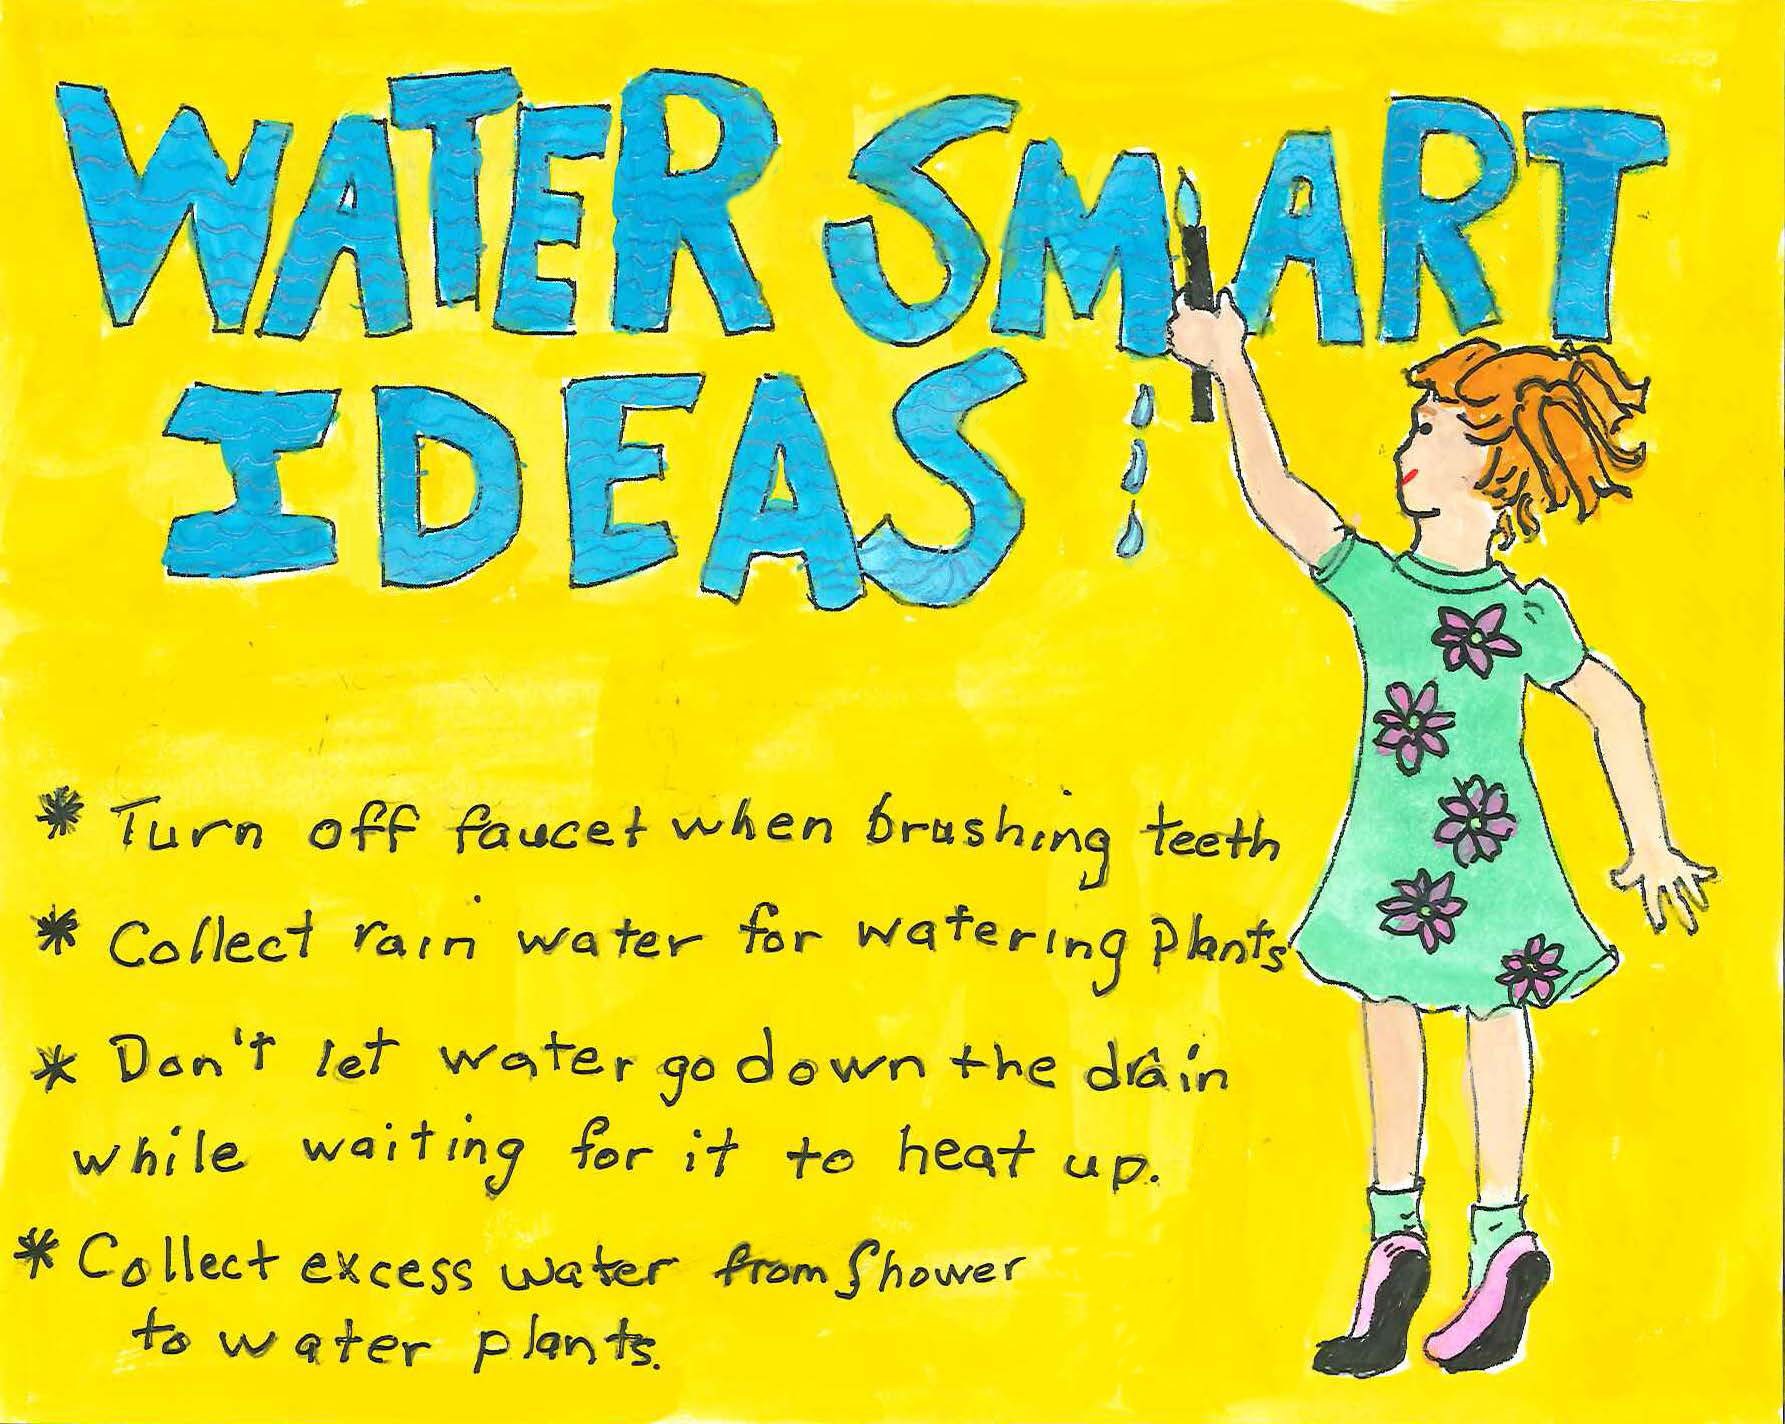 WATER SMART
IDEAS
* Turn off faucet when brushing teeth
* Collect rain water for watering plants
* Don't let water go down the drain
while waiting for it to heat up.
* Collect excess water from shower
to water plants.